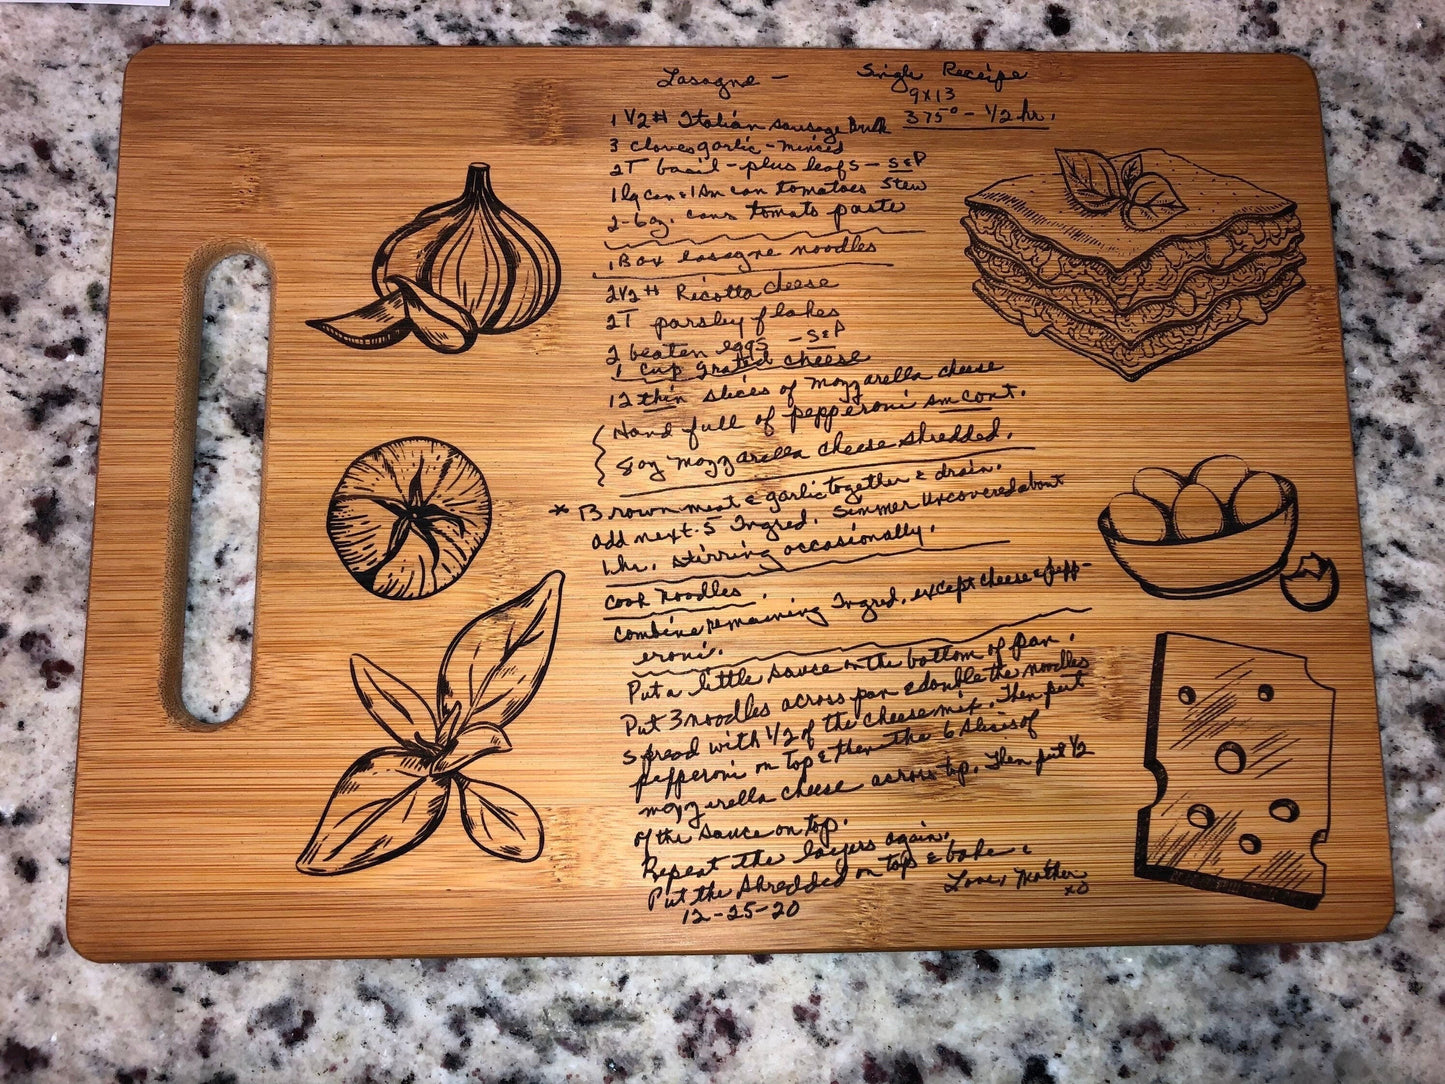 Lasagne - Single Receipe
9x13
375° - 1/2 hr.
1 1/2 # Italian sausage Bulk
3 cloves garlic - minced
2T basil - plus leafs - S & P
1 lg can & 1 sm can tomatoes stew
2 - 6 oz. cans tomato paste
1 Box lasagne noodles
2 1/2 # Ricotta cheese
2T parsley flakes
2 beaten eggs - S & P
1 cup grated cheese
12 thin slices of mozzarella cheese
Hand full of pepperoni sm cont.
8 oz mozzarella cheese shredded.
* Brown meat & garlic together & drain.
add next 5 Ingred. Simmer uncovered about
1 hr. stirring occasionally.
Cook Noodles
Combine remaining Ingred. except cheese & pepp-
eroni.
Put a little sauce on the bottom of pan.
Put 3 noodles across pan & double the noodles
spread with 1/2 of the cheese mix. Then put
pepperoni on top & then the 6 slices of
mozzerella cheese across top. Then put 1/2
of the sauce on top.
Repeat the layers again.
Put the shredded on top & bake.
Love, Mother
xo
12-25-20